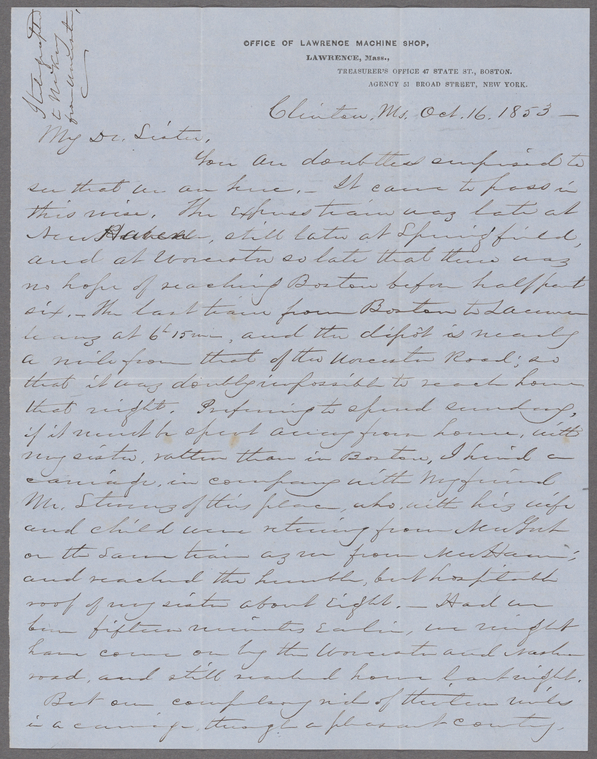 OFFICE OF LAWRENCE MACHINE SHOP,
LAWRENCE, Mass.,
TREASURER'S OFFICE 47 STATE ST., BOSTON.
AGENCY 51 BROAD STREET, NEW YORK.
Clinton, Ms. Oct. 16. 1853 —
My Dr. Sister,
You are doubtless surprised to
see that we are here. — It came to pass in
this wise. The Express train was late at
New Haven, still later at Springfield,
and at Worcester so late that there was
no hope of reaching Boston before half past
six. — The last train from Boston to Lawrence
leaves at 6h 15m, and the depôt is nearly
a mile from that of the Worcester Road; so
that it was doubly impossible to reach home
that night. Preferring to spend sunday,
if it must be spent away from home, with
my sister, rather than in Boston, I hired a
carriage, in company with my friend
Mr. of this place, who, with his wife
and child were returning from New York
on the same train as we from New Haven;
and reached the humble, but hospitable
roof of my sister about Eight. — Had we
been fifteen minutes Earlier, we might
have come on by the Worcester and Nashua
road, and still reached home last night.
But our compulsory ride of thirteen miles
in a carriage, through a pleasant country,